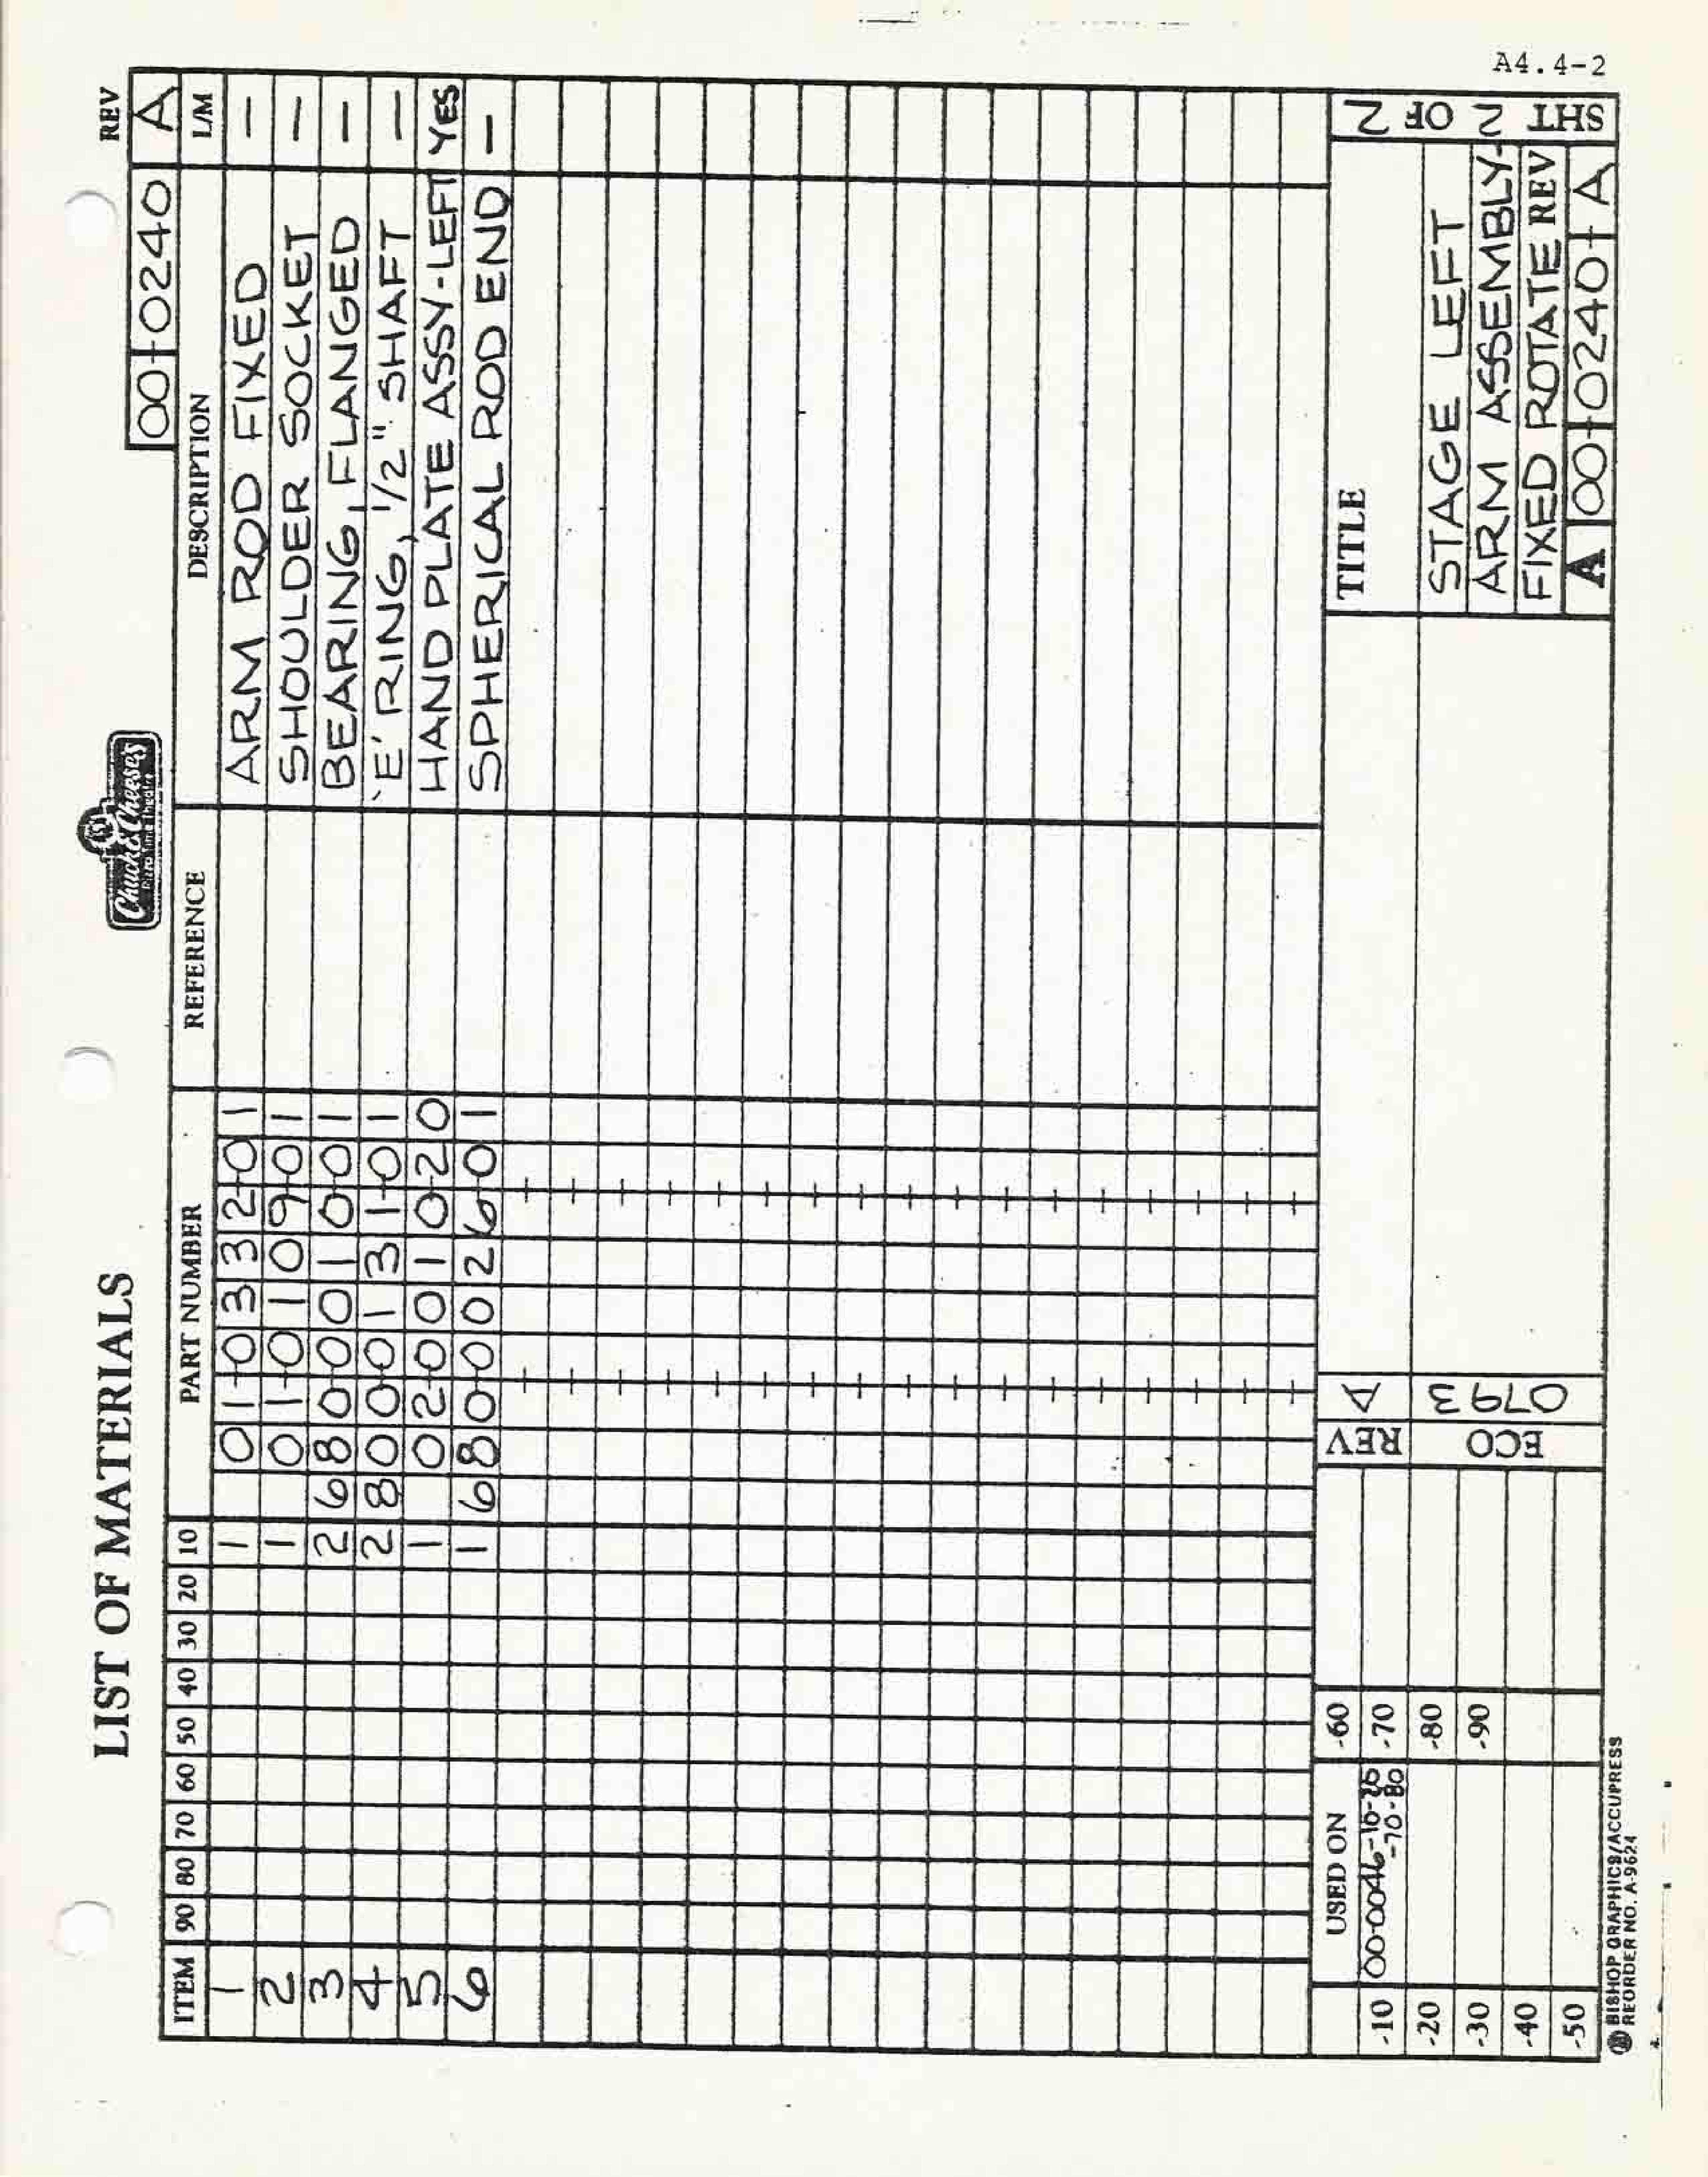 A4.4-2
LIST OF MATERIALS
Chuck E. Cheese's
Pizza Time Theatre
REV
00-0240 A
ITEM 90 80 70 60 50 40 30 20 10 PART NUMBER REFERENCE DESCRIPTION L/M
1 1 01-0332-01 ARM ROD FIXED —
2 1 01-0109-01 SHOULDER SOCKET —
3 2 680-0010-01 BEARING, FLANGED —
4 2 800-0131-01 'E' RING, 1/2" SHAFT —
5 1 02-0010-20 HAND PLATE ASSY-LEFT YES
6 1 680-0026-01 SPHERICAL ROD END —
USED ON
-10 00-0046-10
-70-80
-20
-30
-40
-50
-60
-70
-80
-90
REV A
ECO 0793
TITLE
STAGE LEFT
ARM ASSEMBLY-
FIXED ROTATE REV
A 00-0240- A
SHT 2 OF 2
BISHOP GRAPHICS/ACCUPRESS
REORDER NO. A-9624